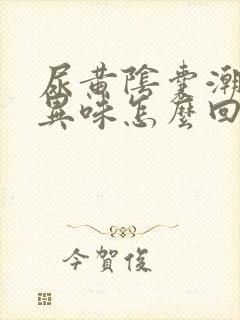 尿黄陰囊潮
異味怎麼回
今賀俊